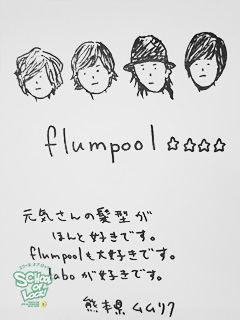 flumpool ☆☆☆☆
元気さんの髪型が
ほんと好きです。
flumpoolも大好きです。
laboが好きです。
SCHOOL OF LOCK!
熊本県 ムムリク